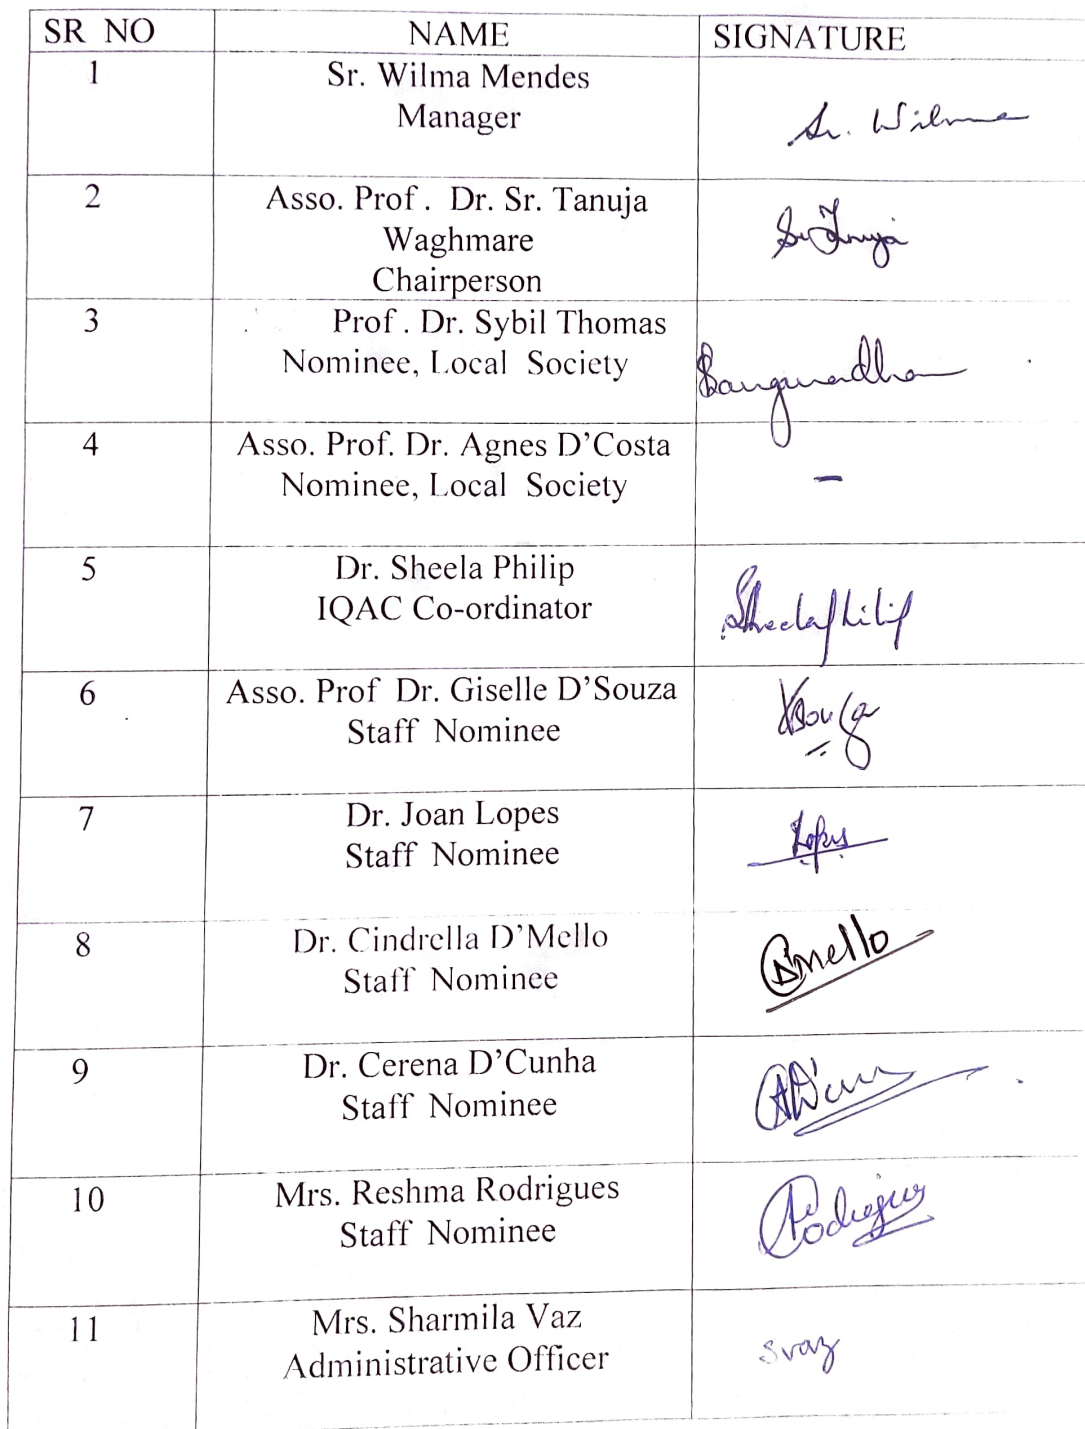 SR NO NAME SIGNATURE
1 Sr. Wilma Mendes
Manager
Sr. Wilma
2 Asso. Prof. Dr. Sr. Tanuja
Waghmare
Chairperson
Sr Tanuja
3 Prof. Dr. Sybil Thomas
Nominee, Local Society
4 Asso. Prof. Dr. Agnes D’Costa
Nominee, Local Society
–
5 Dr. Sheela Philip
IQAC Co-ordinator
Sheela Philip
6 Asso. Prof Dr. Giselle D’Souza
Staff Nominee
7 Dr. Joan Lopes
Staff Nominee
Lopes
8 Dr. Cindrella D’Mello
Staff Nominee
D'mello
9 Dr. Cerena D’Cunha
Staff Nominee
10 Mrs. Reshma Rodrigues
Staff Nominee
Rodrigues
11 Mrs. Sharmila Vaz
Administrative Officer
svaz